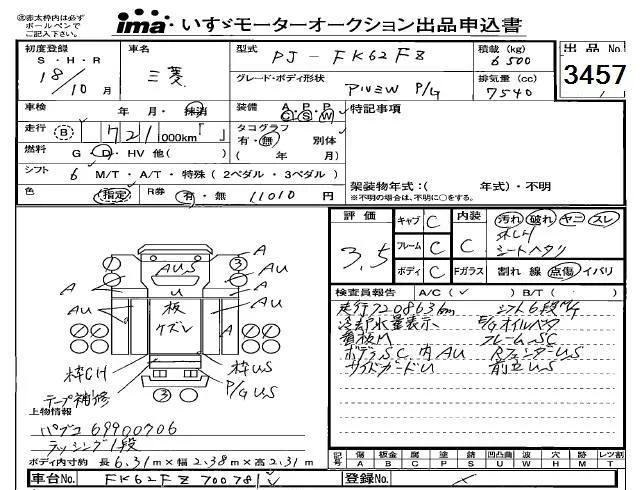 ㊟赤太枠内は必ず
ボールペンで
ご記入下さい。
ima いすゞモーターオークション出品申込書
初度登録
S・H・R
18/10 月
車名
三菱
型式
PJ-FK62FZ
積載 (kg)
6500
出品No.
3457
グレード・ボディ形状
アルミW P/G
排気量 (cc)
7540
車検
年 月・抹消
装備 A P P
C S W
特記事項
走行 B 721 000km「 」
タコグラフ
有・無 別体
( 年 月)
燃料
G・D・HV 他( )
シフト 6 M/T・A/T・特殊 (2ペダル・3ペダル)
架装物年式:( 年式)・不明
※不明の場合は、不明に○をする。
色 指定 R券 有・無 11010 円
評価
3.5
キャブ C
フレーム C
ボディ C
内装
C
Fガラス
汚れ 破れ ヤニ スレ
シートヘタリ
割れ 線 点傷 イバリ
検査員報告 A/C(✓) B/T( )
走行720863km シフト6段M/T
冷却水量表示 E/Gオイルベタ
看板M フレームSC
ボデーSC、内AU RフェンダーUS
サイドガードU 前立US
A
AUS
3
A
A
U
AU
A
AU
板
ケズレ
AU
枠CH
枠US
テープ補修
P/G US
3
上物情報
パブコ 69900706
ラッシング1段
ボディ内寸約 長6.31m×幅2.38m×高2.31m
記号
傷 板金 腐 塗 錆 凹凸凹 波 穴 跡 レツ割
A B C P S U W H M T
車台No. FK62FZ700781 ✓
登録No. ×